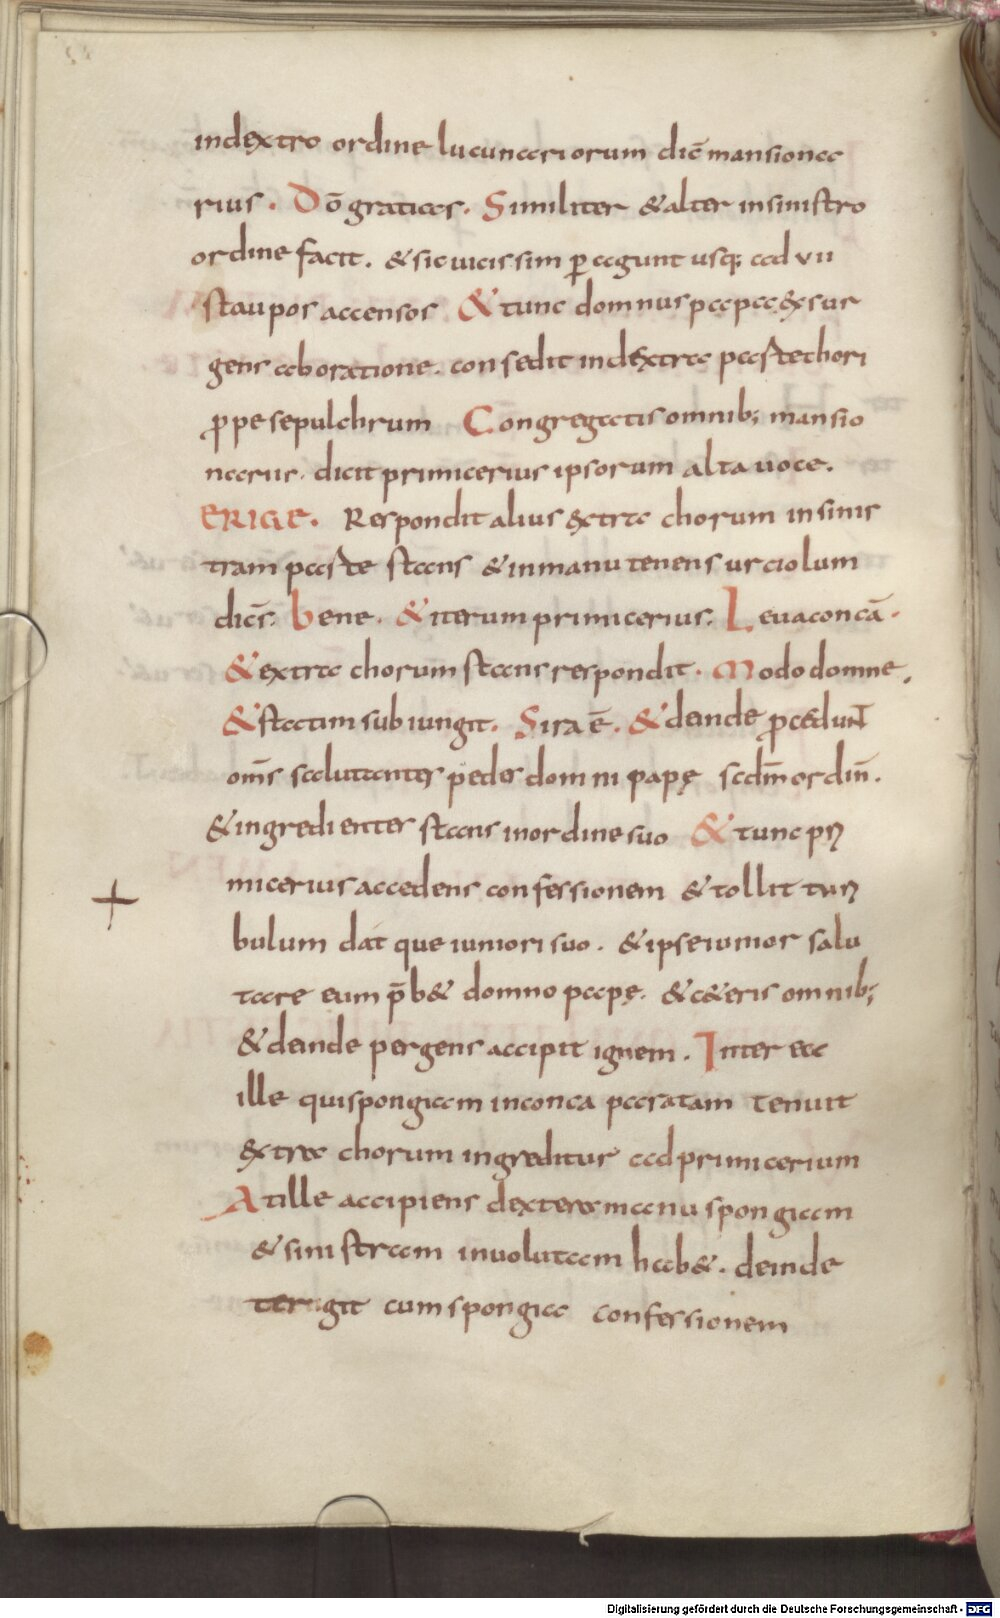 indextro ordine lucunariorum dic̄ mansiona
rius . Dō gratias . Similiter & alter insinistro
ordine facit . & sic uicissim ꝑ agunt usq; ad vii
staupos accensos & tunc domnus papa exsur
gens ab oratione . consedit indextra paste thori
ꝓpe sepulchrum Congregatis omnib; mansio
narius . dicit primicerius ipsorum alta uoce .
ERIGE . Respondit alius extra chorum insinis
tram paste stans & inmanu tenens urciolum
dicēs . bene . & iterum primicerius . Leuaconcā .
& extra chorum stans respondit . Modo domne .
& statim subiungit . Sira ē . & deinde ꝓcedunt
om̄s salutanter pedes domni papę scdm̄ ordin̄ .
& ingredienter stans inordine suo & tunc pri
micerius accedens confessionem & tollit turi
bulum dat que iuniori suo . & ipse iunior salu
tare eum p̄b& domno papę . & c&eris omnib;
& deinde pergens accipit ignem . Inter ea
ille quispongiam inconca paratam tenuit
extra chorum ingreditur ad primicerium
At ille accipiens dextera manu spongiam
& sinistram inuolutam hab& . deinde
tergit cum spongia confessionem
Digitalisierung gefördert durch die Deutsche Forschungsgemeinschaft - DFG